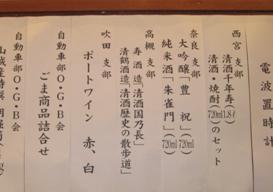 電波置時計
西宮 支部
清酒千年寿(1.8ℓ)
清酒・焼酎(720ml)のセット
奈良 支部
大吟醸「豊祝」(720ml)
純米酒「朱雀門」(720ml)
高槻 支部
寿酒造「清酒國乃長」
清鶴酒造「清酒歴史の散歩道」
吹田 支部
ポートワイン 赤、白
自動車部O・G・B会
ごま商品詰合せ
自動車部O・G・B会